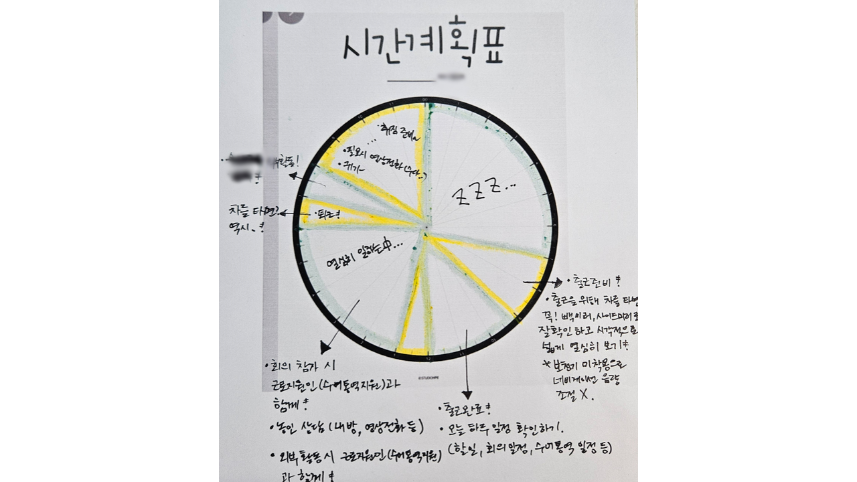 시간계획표
• 취침 준비~
• 필요시 영상전화(수다..?
• 귀가~
ZZZ...
• 퇴근!
열심히 일하는中...
차를 타면?
역시.. !
• 출근준비!
• 출근을 위해 차를 타면
꼭! 백미러, 사이드미러를
잘 확인 하고 시각적으로
넓게 열심히 보기!
* 보청기 미착용으로
네비게이션 음량
조절 X.
• 회의 참가 시
근로지원인(수어통역지원)과
함께!
• 농인 상담 (내방, 영상전화 등)
• 외부활동 시 근로지원인(수어통역지원)
과 함께!
• 출근완료!
• 오늘 하루 일정 확인하기.
(할일, 회의일정, 수어통역 일정 등)